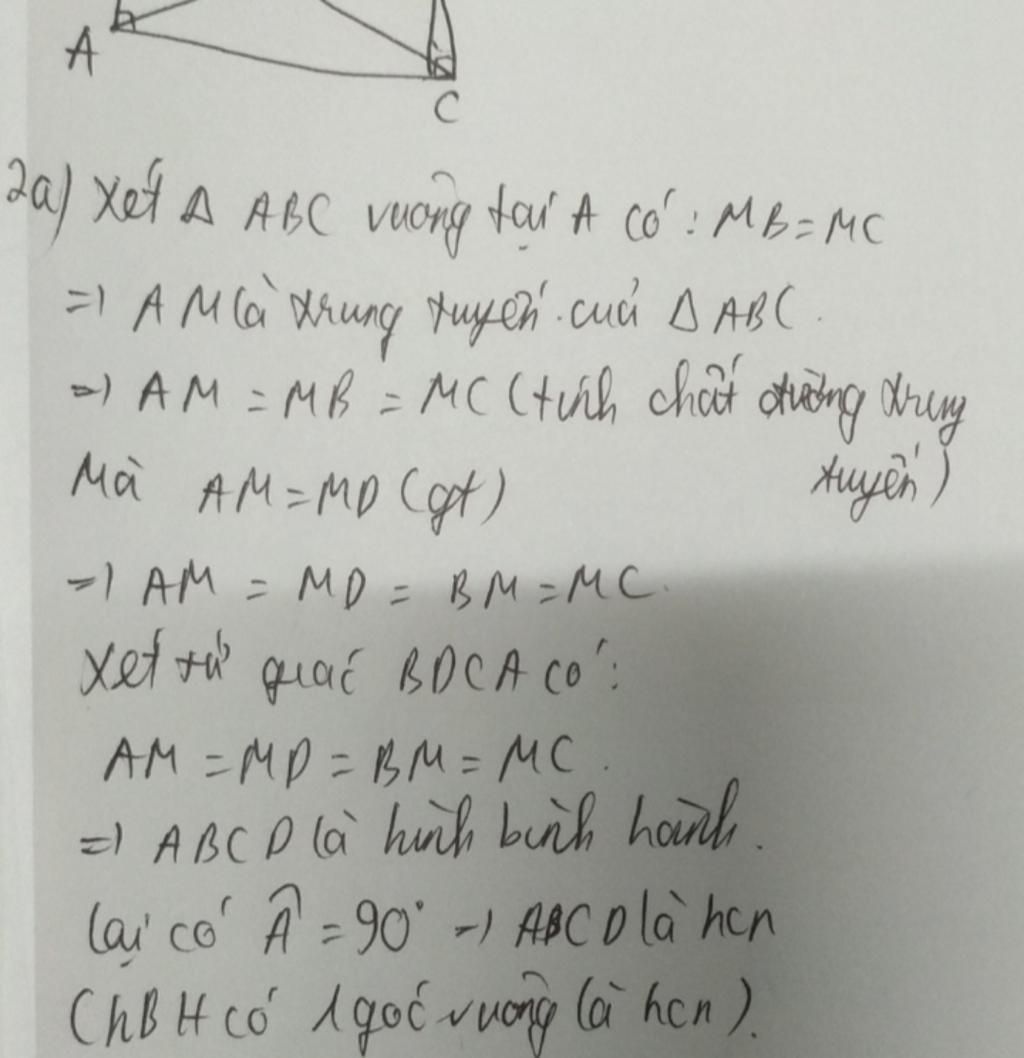 A
C
2a) Xét Δ ABC vuông tại A có: MB=MC
=) AM là trung tuyến của Δ ABC.
=) AM = MB = MC (tính chất đường trung
tuyến)
Mà AM=MD (gt)
=) AM = MD = BM = MC.
Xét tứ giác BDCA có:
AM = MD = BM = MC.
=) ABCD là hình bình hành.
Lại có Â = 90° =) ABCD là hcn
(hBH có 1 góc vuông là hcn).